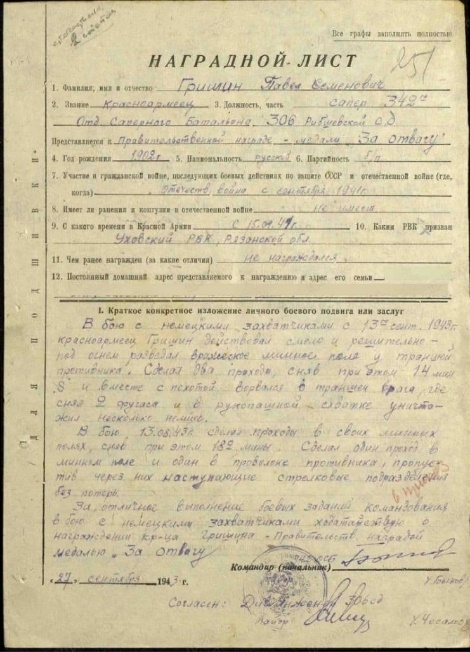 Все графы заполнять полностью
251
НАГРАДНОЙ ЛИСТ
1. Фамилия, имя и отчество Гришин Павел Семенович
2. Звание Красноармеец 3. Должность, часть сапер 342го
Отд. Саперного Батальона, 306 Рибшевской с.д.
Представляется к правительственной награде - медали „За отвагу"
4. Год рождения 1902г. 5. Национальность русский 6. Партийность б/п
7. Участие в гражданской войне, последующих боевых действиях по защите СССР и отечественной войне (где,
когда) Отечеств. война с сентября 1941г
8. Имеет ли ранения и контузии в отечественной войне не имеет
9. С какого времени в Красной Армии с 15.08.41г 10. Каким РВК призван
Уховский РВК, Рязанской обл.
11. Чем ранее награжден (за какие отличия) не награждался
12. Постоянный домашний адрес представляемого к награждению и адрес его семьи
I. Краткое конкретное изложение личного боевого подвига или заслуг
В бою с немецкими захватчиками с 13го сент. 1943г.
красноармеец Гришин действовал смело и решительно -
под огнем разведал вражеское минное поле у траншей
противника. Сделал два прохода, сняв при этом 14 мин
и вместе с пехотой ворвался в траншеи врага, где
снял 2 фугаса и в рукопашной схватке уничто-
жил несколько немцев.
В бою 13.08.43г. сделал проходы в своих минных
полях, сняв при этом 182 мины. Сделал один проход в
минном поле и один в проволоке противника, пропус-
тив через них наступающие стрелковые подразделения
без потерь.
За отличное выполнение боевых заданий командования
в бою с немецкими захватчиками ходатайствую о
награждении кр-ца Гришина - Правительств. наградой
медалью „За отвагу"
Командир (начальник)
27 сентября 1943 г.
Согласен: Див. инженер 306сд
Майор
Для подшивки